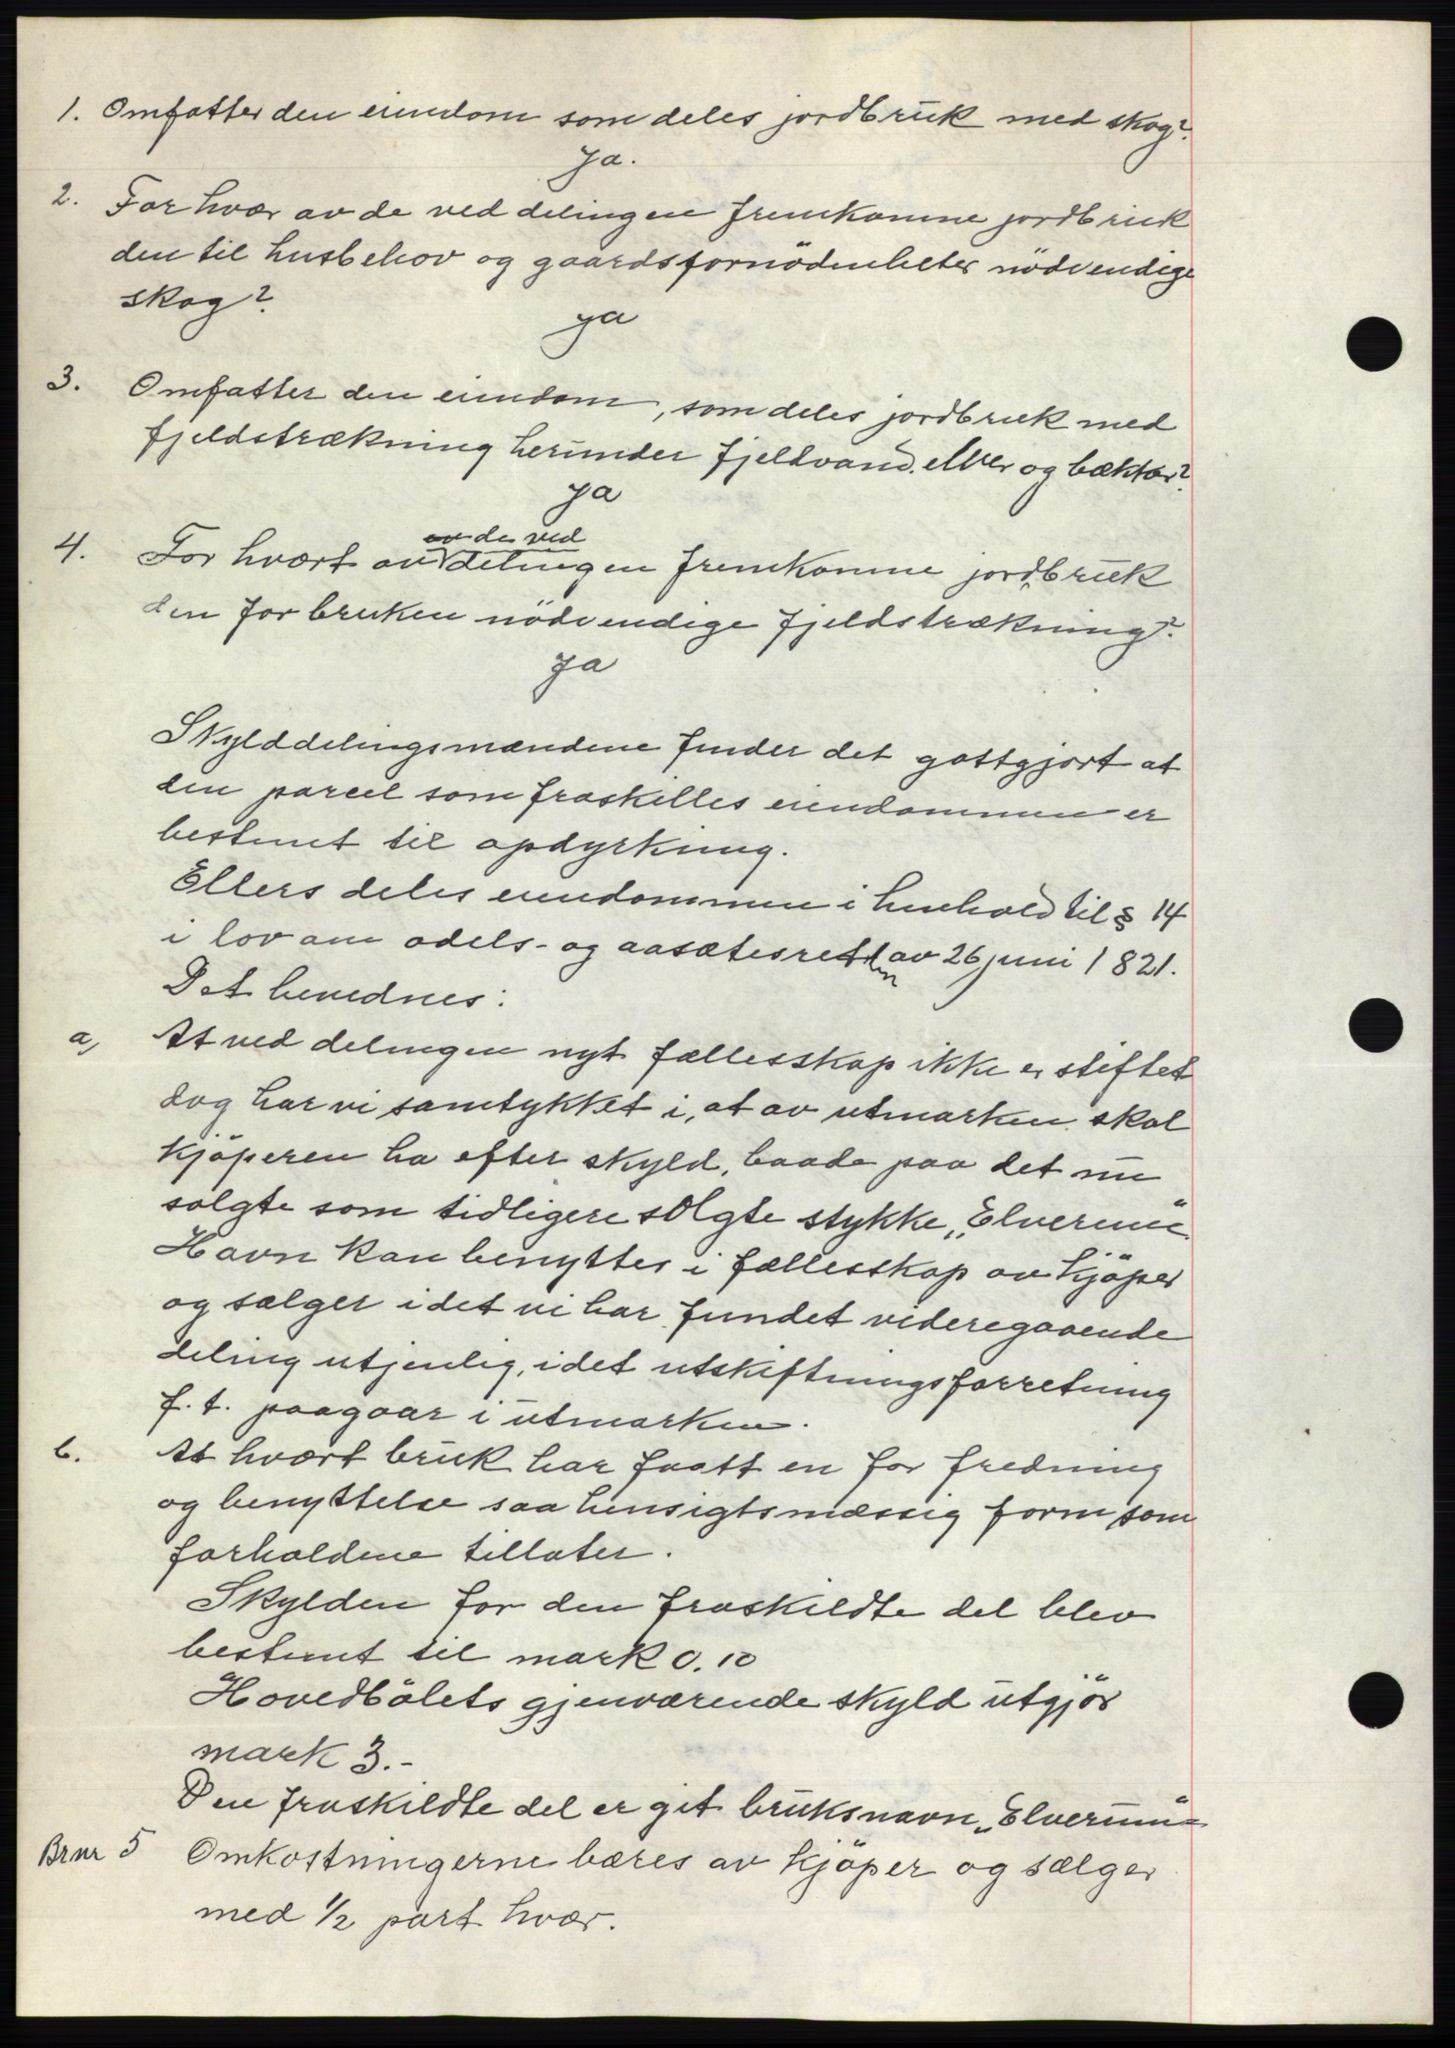 1. Omfatter den eiendom som deles jordbruk med skog?
Ja.
2. Far hvær av de ved delingen fremkomne jordbruk
den til husbehov og gaardsfornödenheter nödvendige
skog?
Ja
3. Omfatter den eiendom, som deles jordbruk med
fjeldstrækning herunder fjeldvand, elver og bækker?
Ja
4. For hvært av av de ved delingen fremkomne jordbruk
den for bruken nödvendige fjeldstrækning?
Ja
Skylddelingsmændene finder det gottgjort at
den parcel som fraskilles eiendommen er
bestemt til opdyrkning.
Ellers deles eiendommen i henhold til § 14
i lov om odels- og aasætesretten av 26 juni 1821.
Det bevidnes:
a, At ved delingen nyt fællesskap ikke er stiftet
dog har vi samtykket i, at av utmarken skal
kjöperen ha efter skyld, baade paa det nu
solgte som tidligere solgte stykke „Elverum"
Havn kan benyttes i fællesskap av kjöper
og sælger idet vi har fundet videregaaende
deling utjenlig, idet utskiftningsforretning
f. t. paagaar i utmarken.
b. At hvært bruk har faatt en for fredning
og benyttelse saa hensigtsmæssig form som
forholdene tillater.
Skylden for den fraskildte del blev
bestemt til mark 0.10
Hovedbölets gjenværende skyld utgjör
mark 3.-
Den fraskildte del er git bruksnavn „Elverum"
Brnr 5 Omkostningerne bæres av kjöper og sælger
med 1/2 part hvær.